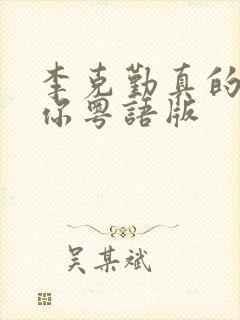 李克勤真的
你粵語版
吴某斌